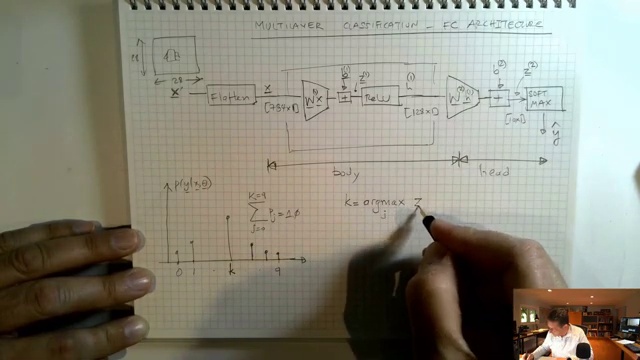 MULTILAYER CLASSIFICATION - FC ARCHITECTURE
28
28
X
Flatten
x
[784x1]
W⁽¹⁾x
b⁽¹⁾
+
z⁽¹⁾
ReLU
[128x1]
b⁽²⁾
+
z⁽²⁾
[10x1]
SOFT
MAX
ŷ
body
head
p(y|x,θ)
K=9
Σ Pj = 1.0
j=0
0 1 k 9
k = argmax z
j